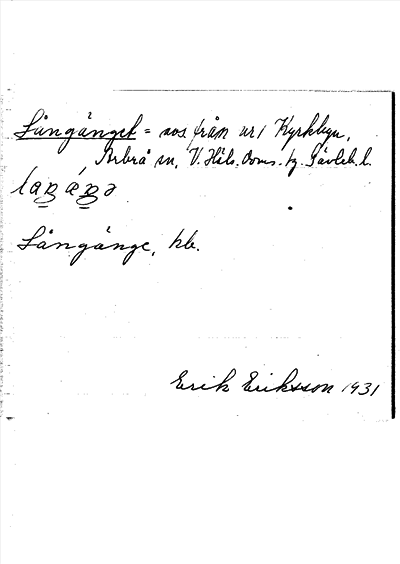 Långänget = sos från ur 1 Kyrkbyn,
Arbrå sn, V. Häls. doms. tg. Gävleb. l.
Långänge, hb.
Erik Eriksson 1931